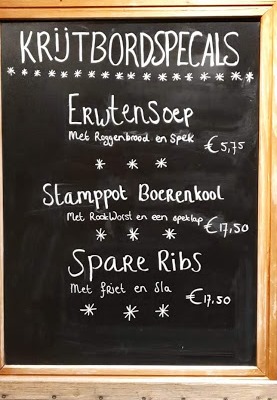 KRIJTBORDSPECALS
* * * * * * * * * * * * * * * * * *
Erwtensoep
Met Roggenbrood en Spek €5,75
* * *
Stamppot Boerenkool
Met RookWorst en een speklap €17,50
* * *
Spare Ribs
Met friet en sla €17.50
* * *